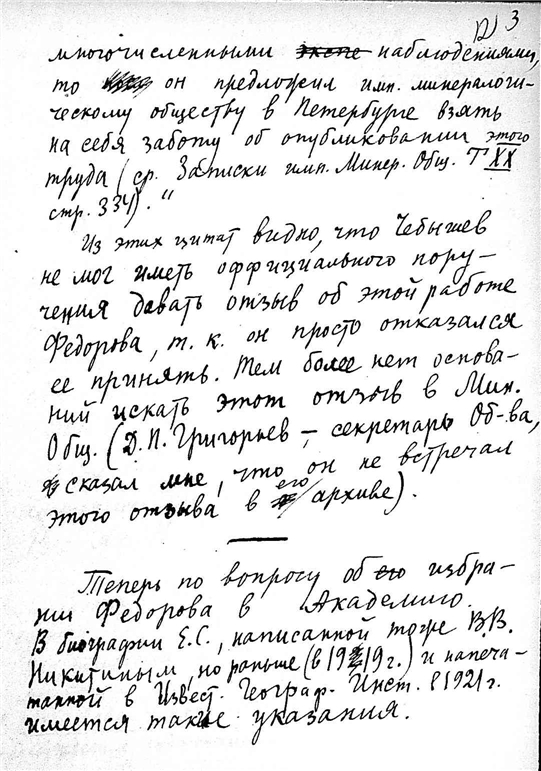 3
многочисленными экспе наблюдениями,
то он предложил имп. минералоги-
ческому обществу в Петербурге взять
на себя заботу об опубликовании этого
труда (ср. Записки имп. Минер. Общ. Т XX
стр. 334)."
Из этих цитат видно, что Чебышев
не мог иметь оффициального пору-
чения давать отзыв об этой работе
Федорова, т. к. он просто отказался
ее принять. Тем более нет основа-
ний искать этот отзыв в Мин.
Общ. (Д.П. Григорьев – секретарь Об-ва,
сказал мне, что он не встречал
этого отзыва в его архиве).
Теперь по вопросу об его избра-
нии Федорова в Академию.
В биографии Е.С., написанной тоже В.В.
Никитиным, но раньше (в 1919 г.) и напеча-
танной в Извест. Географ. Инст. в 1921 г.
имеется такие указания.